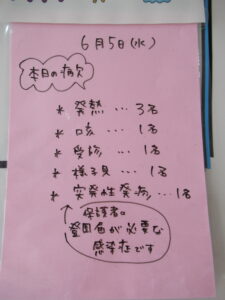 6月5日(水)
本日の病欠
* 発熱 … 3名
* 口咳 … 1名
* 受診 … 1名
* 様子見 … 1名
* 突発性発疹 … 1名
保護者。
登園届が必要な
感染症です